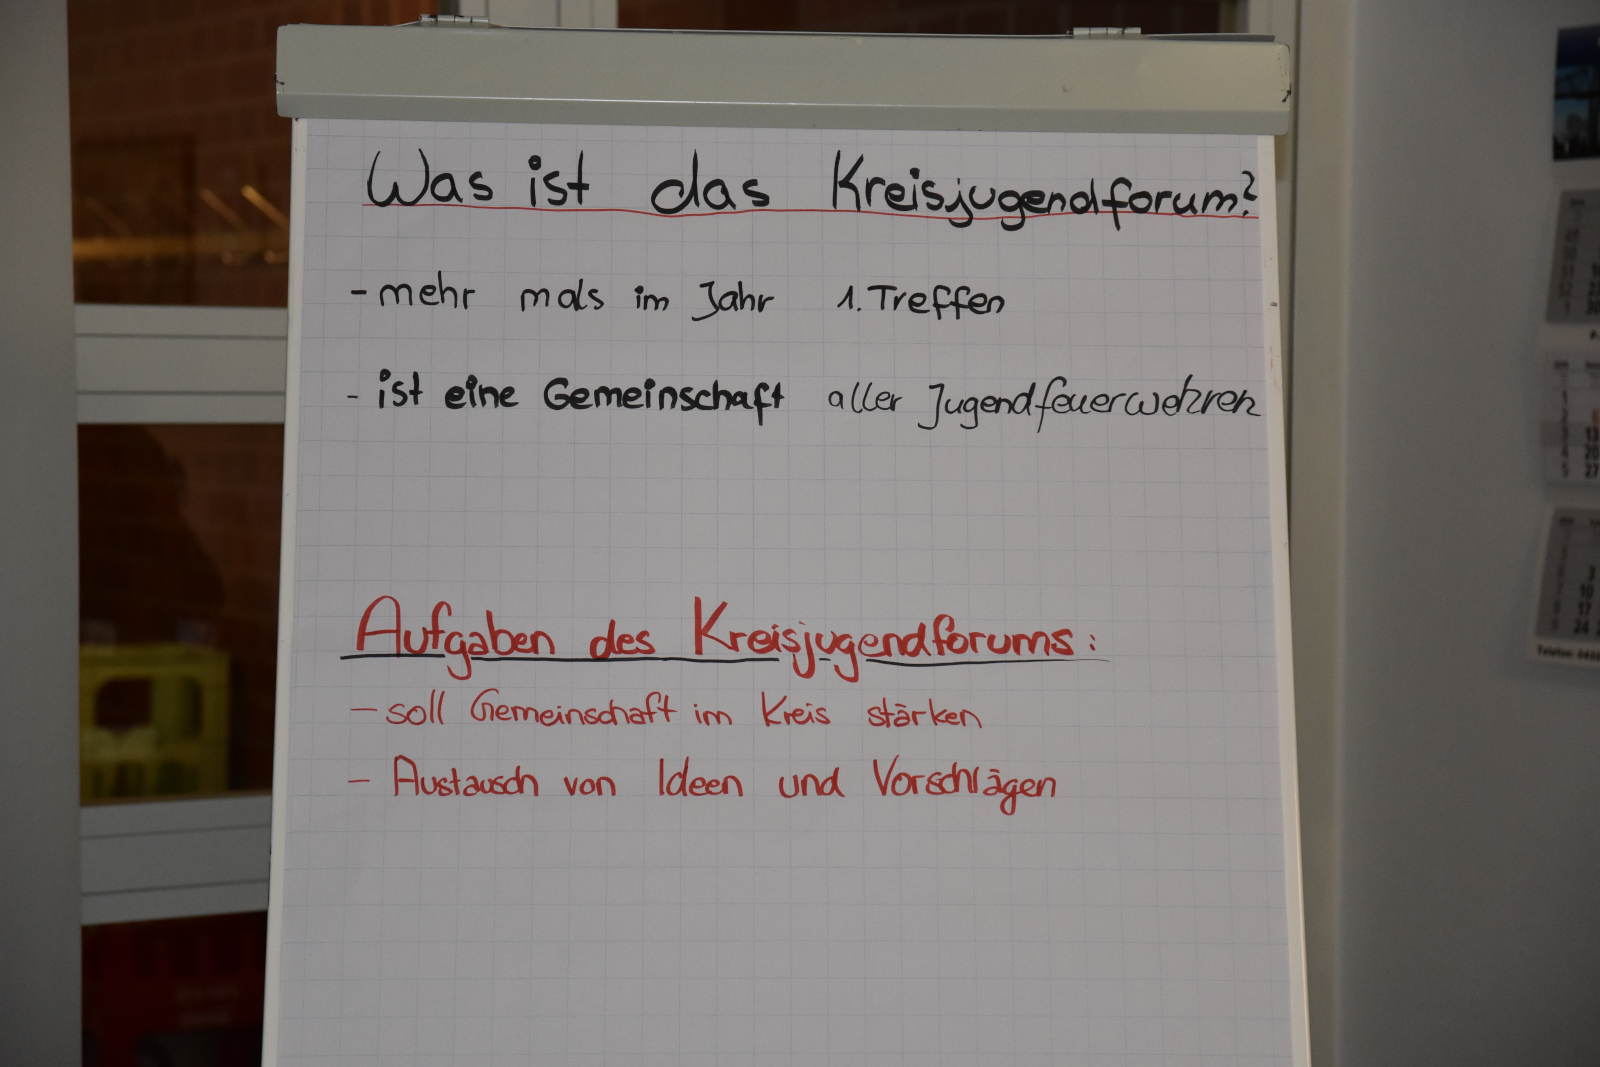 Was ist das Kreisjugendforum?
- mehr mals im Jahr 1. Treffen
- ist eine Gemeinschaft aller Jugendfeuerwehren
Aufgaben des Kreisjugendforums:
- soll Gemeinschaft im Kreis stärken
- Austausch von Ideen und Vorschlägen
13
20
27
3
10
17
24
Telefon: